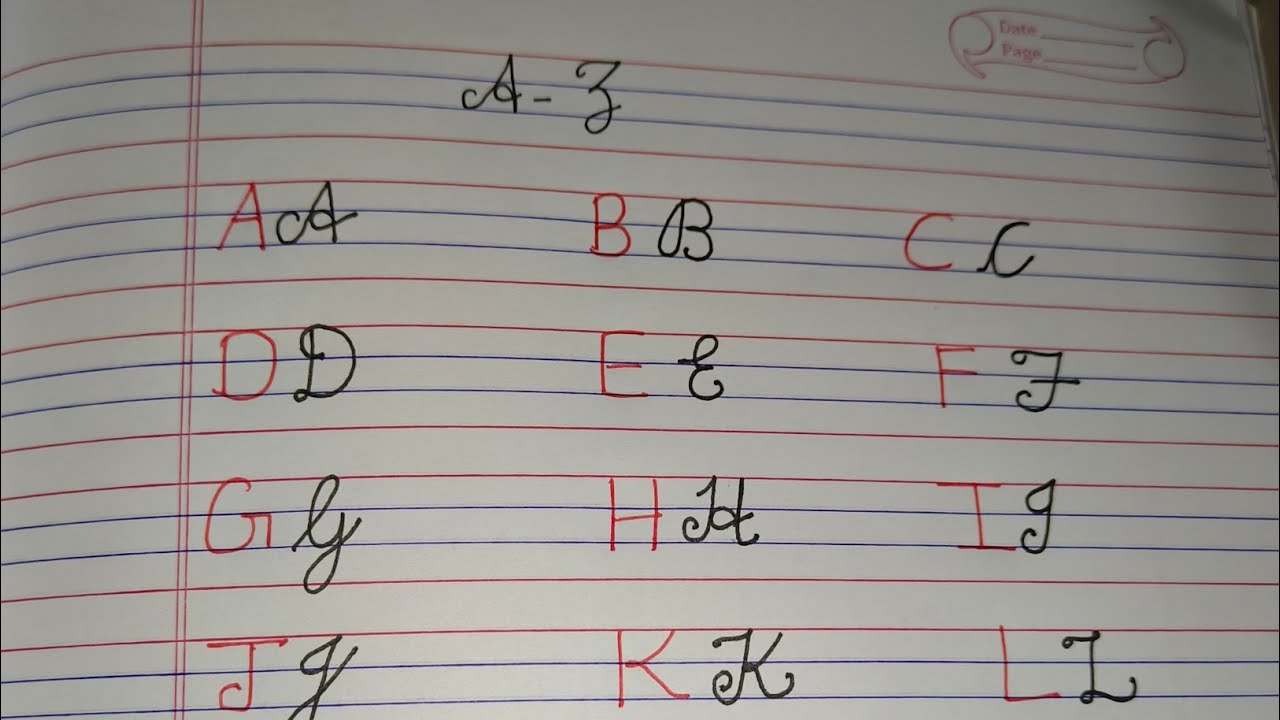 Date
Page
A-Z
A A B B C C
D D E E F F
G G H H I I
J J K K L L